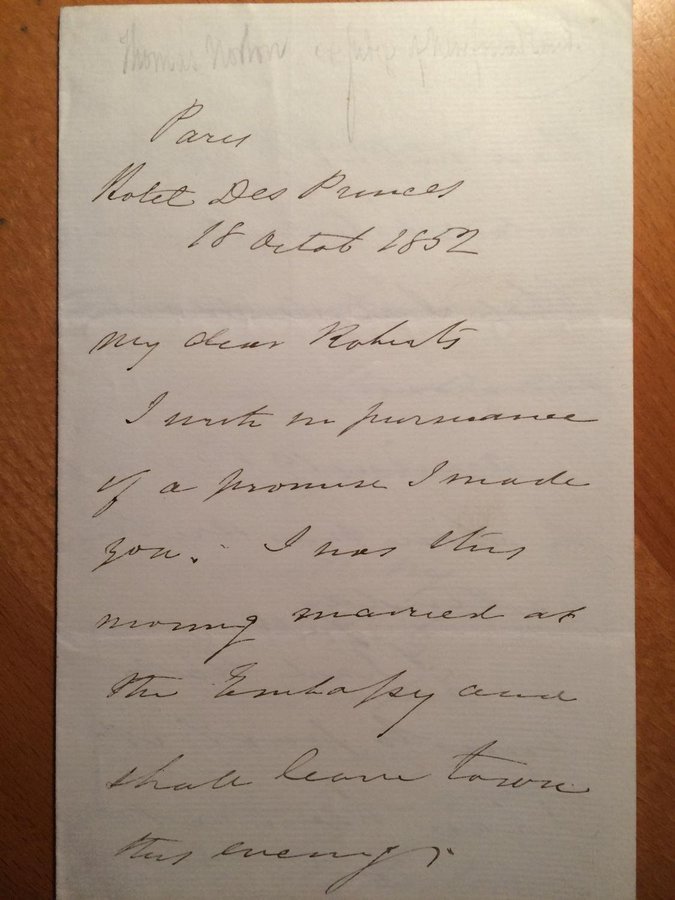 Thomas
Paris
Hotel Des Princes
18 Octob 1852
My dear Roberts
I write in pursuance
of a promise I made
you. I was this
morning married at
the Embassy and
shall leave town
this evening.